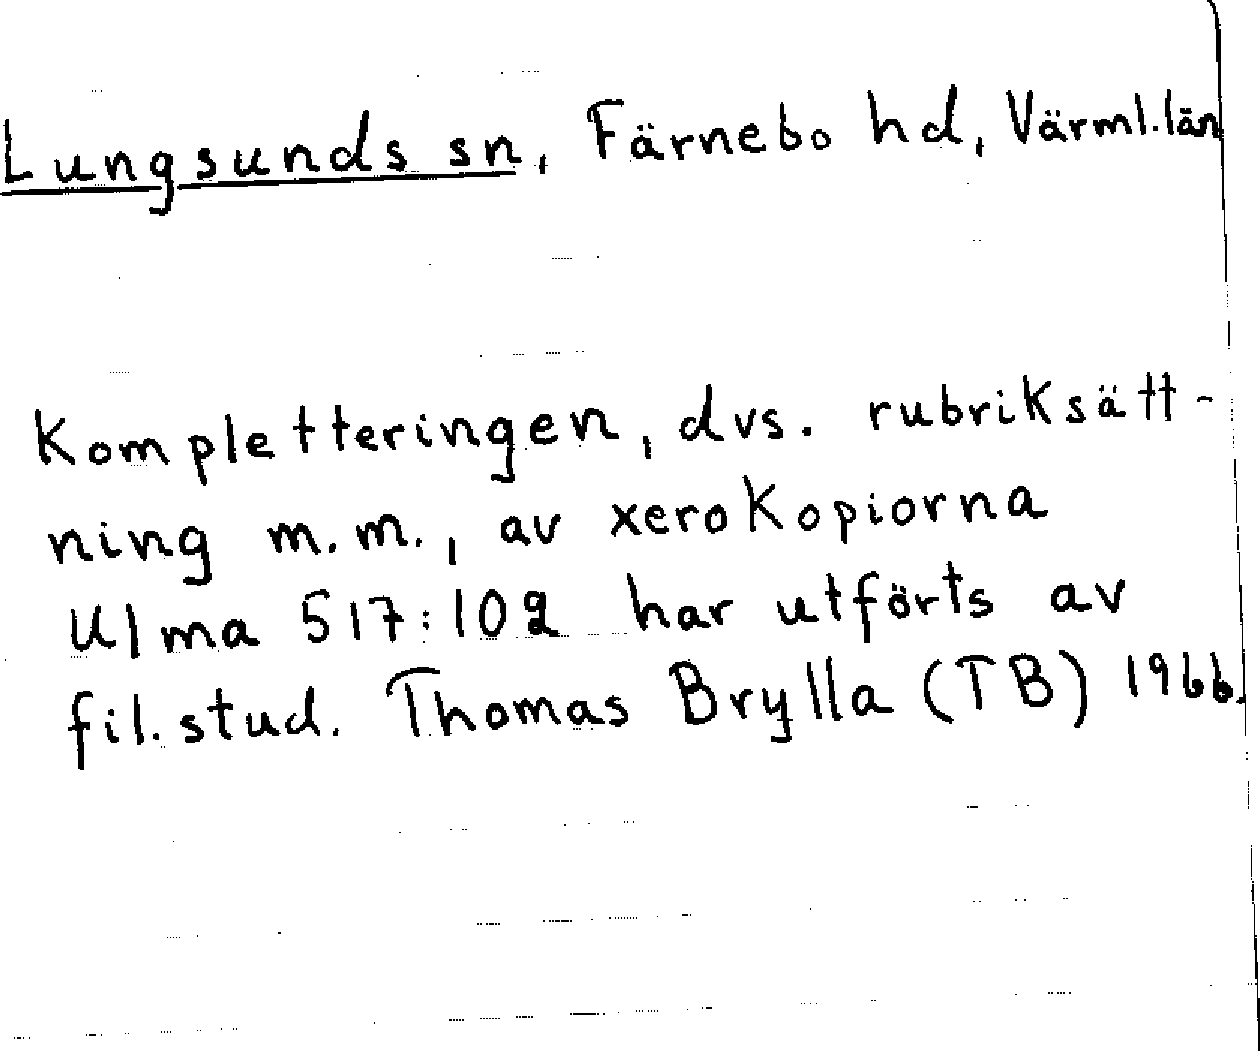 Lungsunds sn, Färnebo hd, Värml. län
Kompletteringen, dvs. rubriksätt-
ning m.m., av xerokopiorna
Ulma 517:102 har utförts av
fil. stud. Thomas Brylla (TB) 1966.